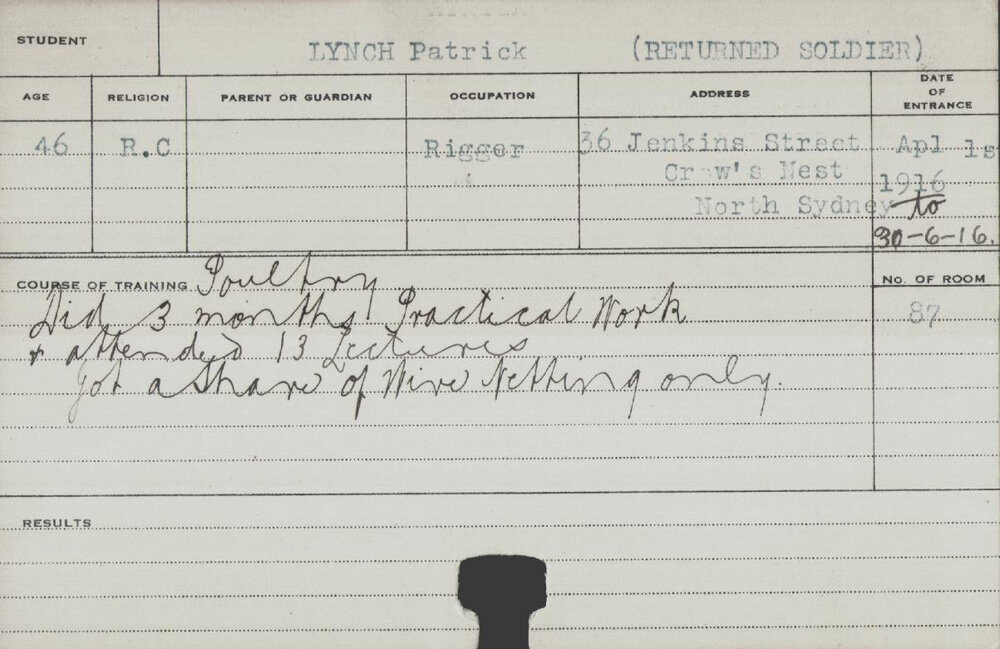 STUDENT LYNCH Patrick (RETURNED SOLDIER)
AGE RELIGION PARENT OR GUARDIAN OCCUPATION ADDRESS DATE OF ENTRANCE
46 R.C Rigger 36 Jenkins Street Apl 1s
Crow's Nest 1916
North Sydney to
30-6-16.
COURSE OF TRAINING Poultry No. OF ROOM
Did 3 months Practical Work 87
+ attended 13 Lectures
got a share of Wire Netting only.
RESULTS